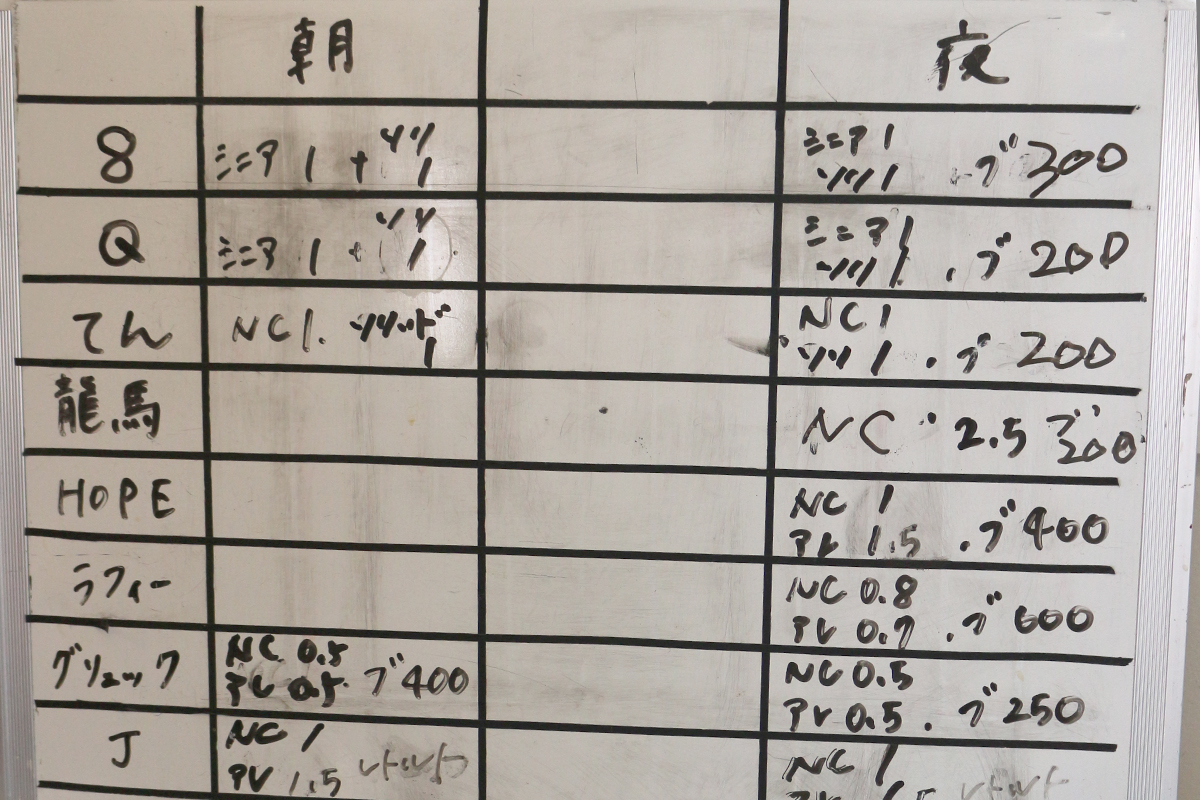 朝 夜
8 ミニア 1 + ソリ 1 ミニア 1 ソリ 1 . ブ 300
Q ミニア 1 + ソリ 1 ミニア 1 ソリ 1 . ブ 200
てん NC 1. ソリッド 1 NC 1 ソリ 1 . ブ 200
龍馬 NC 2.5 ブ 200
HOPE NC 1 アレ 1.5 . ブ 400
ラフィー NC 0.8 アレ 0.7 . ブ 600
グリュック NC 0.5 アレ 0.5 ブ 400 NC 0.5 アレ 0.5 . ブ 250
J NC 1 アレ 1.5 レトルト NC 1 レトルト